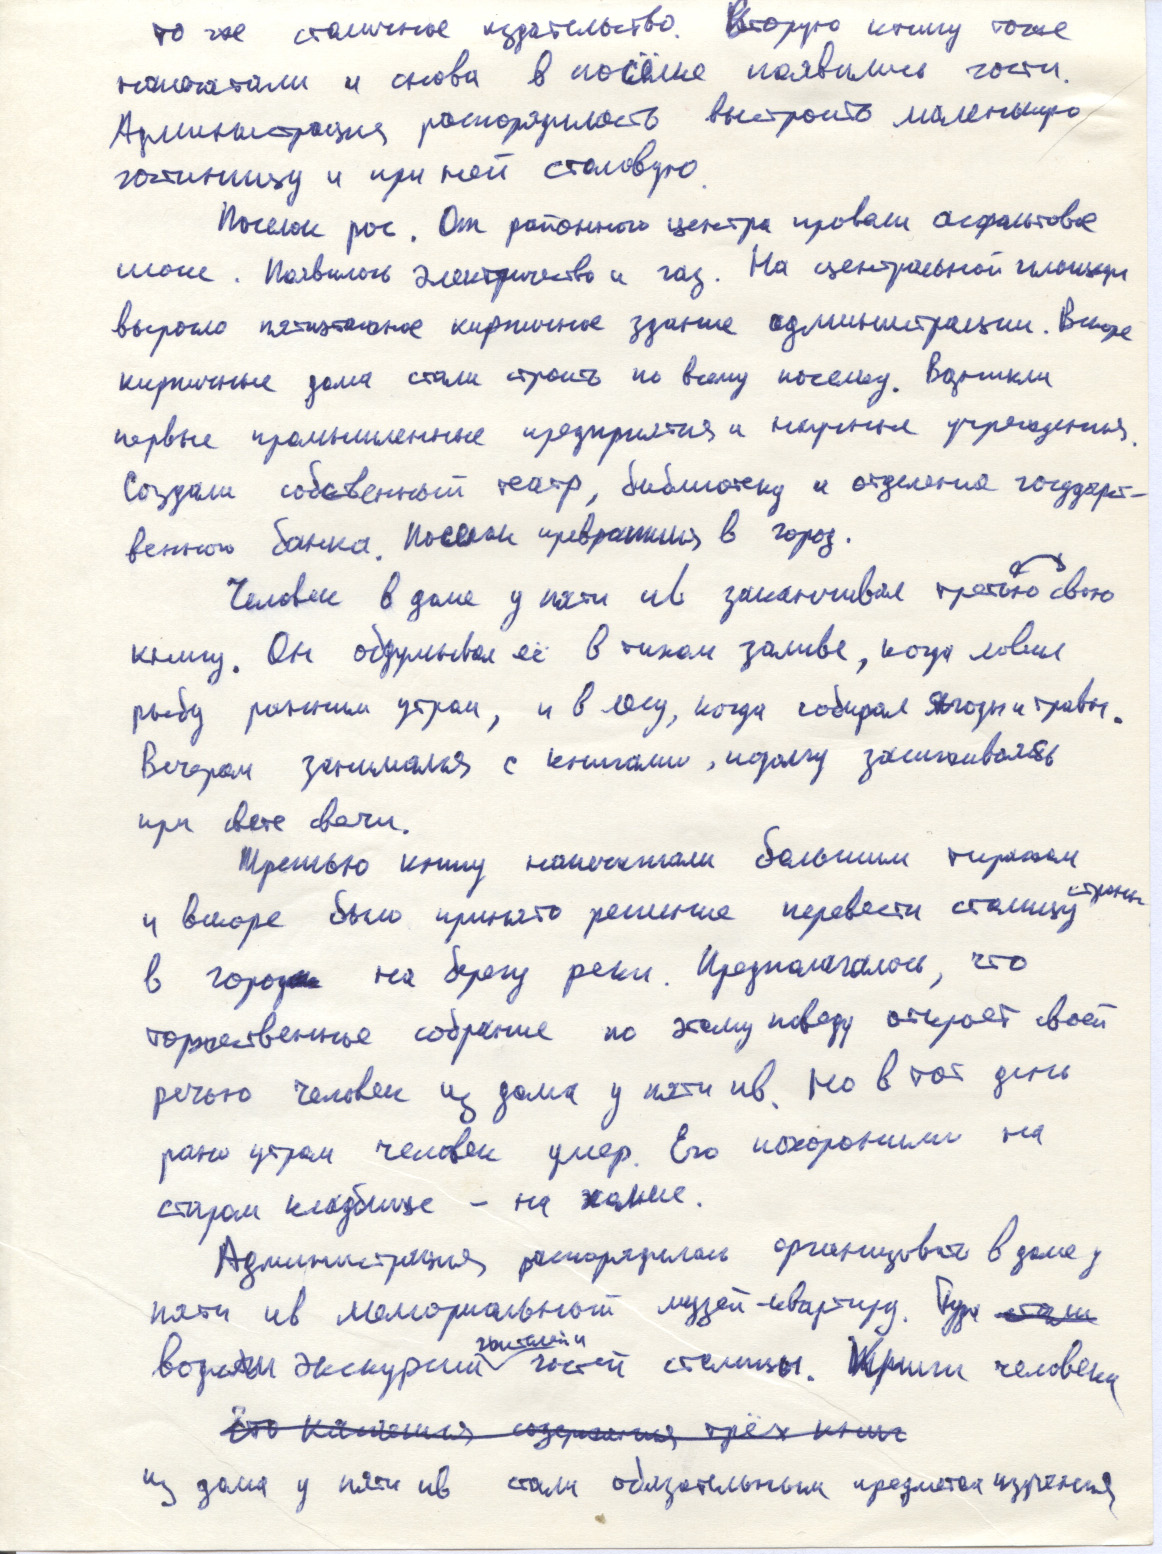 то же столичное издательство. Вторую книгу тоже
напечатали и снова в посёлке появились гости.
Администрация распорядилась выстроить маленькую
гостиницу и при ней столовую.
Поселок рос. От районного центра провели асфальтовое
шоссе. Появилось электричество и газ. На центральной площади
выросло пятиэтажное кирпичное здание администрации. Вскоре
кирпичные дома стали строить по всему поселку. Возникли
первые промышленные предприятия и научные учреждения.
Создали собственный театр, библиотеку и отделение государст-
венного банка. Поселок превратился в город.
Человек в доме у пяти ив заканчивал третью свою
книгу. Он обдумывал её в тихом заливе, когда ловил
рыбу ранним утром, и в лесу, когда собирал ягоды и травы.
Вечером занимался с книгами, подолгу засиживаясь
при свете свечи.
Третью книгу напечатали большим тиражом
и вскоре было принято решение перевести столицу страны
в город на берегу реки. Предполагалось, что
торжественное собрание по этому поводу откроет своей
речью человек из дома у пяти ив. Но в тот день
рано утром человек умер. Его похоронили на
старом кладбище – на холме.
Администрация распорядилась организовать в доме у
пяти ив мемориальный музей-квартиру. Туда стали
водили экскурсии жителей и гостей столицы. Книги человека
Что касается содержания трёх книг
из дома у пяти ив стали обязательным предметом изучения